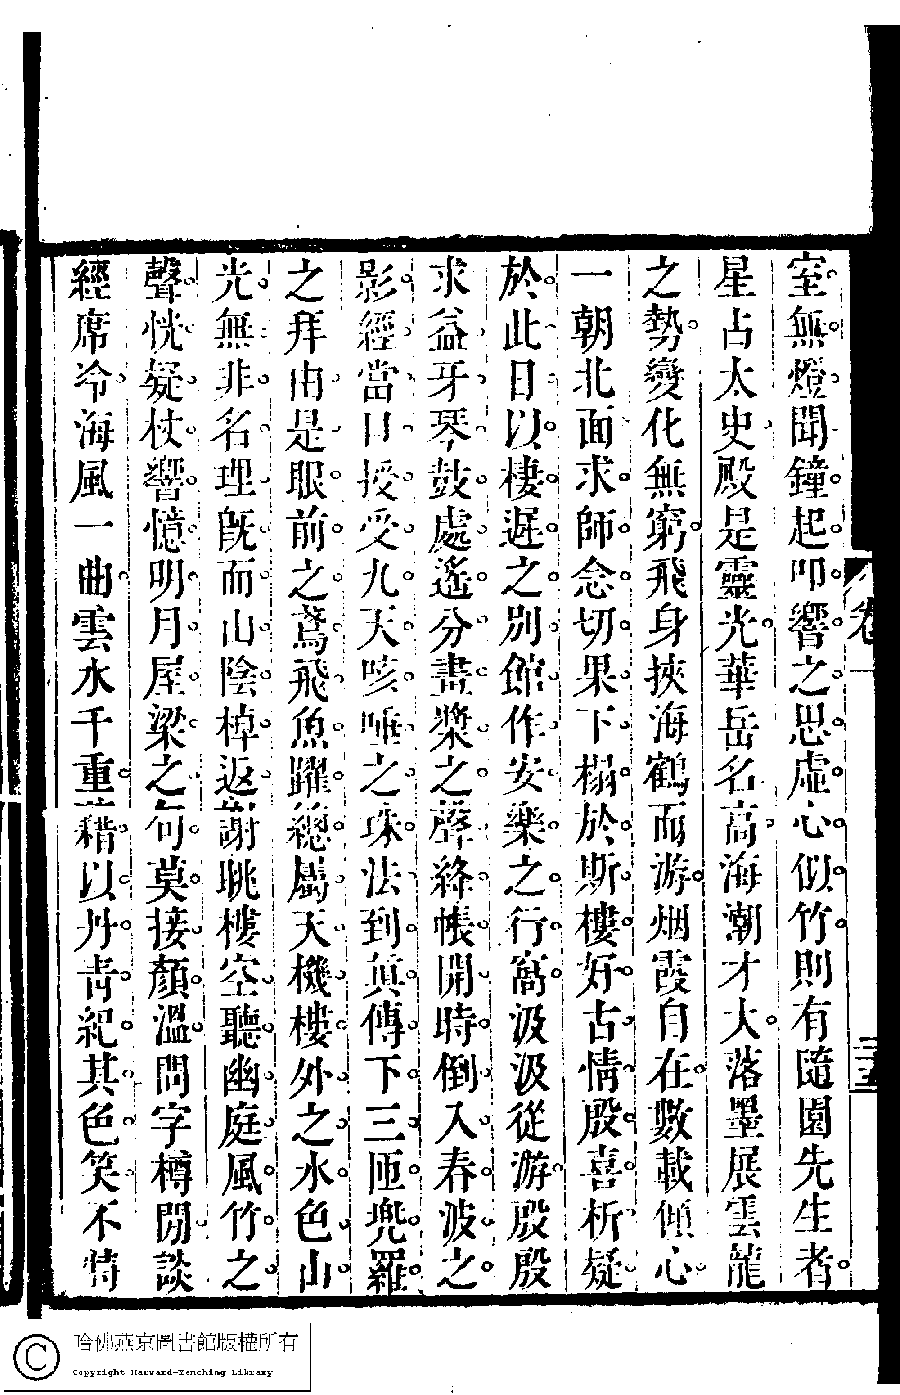 室無燈聞鐘起叩響之思虛心似竹則有隨園先生者
星占太史殿是靈光華岳名高海潮才大落墨展雲龍
之勢變化無窮飛身挾海鶴而游烟霞自在數載傾心
一朝北面求師念切果下榻於斯樓好古情殷喜析疑
於此日以棲遲之別館作安樂之行窩汲汲從游殷殷
求益牙琴鼓處遙分畫槳之聲絳帳開時倒入春波之
影經當日授受九天咳唾之珠法到真傳下三匝兜羅
之拜由是眼前之鳶飛魚躍總屬天機樓外之水色山
光無非名理既而山陰棹返謝眺樓空聽幽庭風竹之
聲恍疑杖響憶明月屋梁之句莫接顏溫問字樽閒談
經席冷海風一曲雲水千重藉以丹青紀其色笑不特
卷一
三五
哈佛燕京圖書館版權所有
Copyright Harvard-Yenching Library